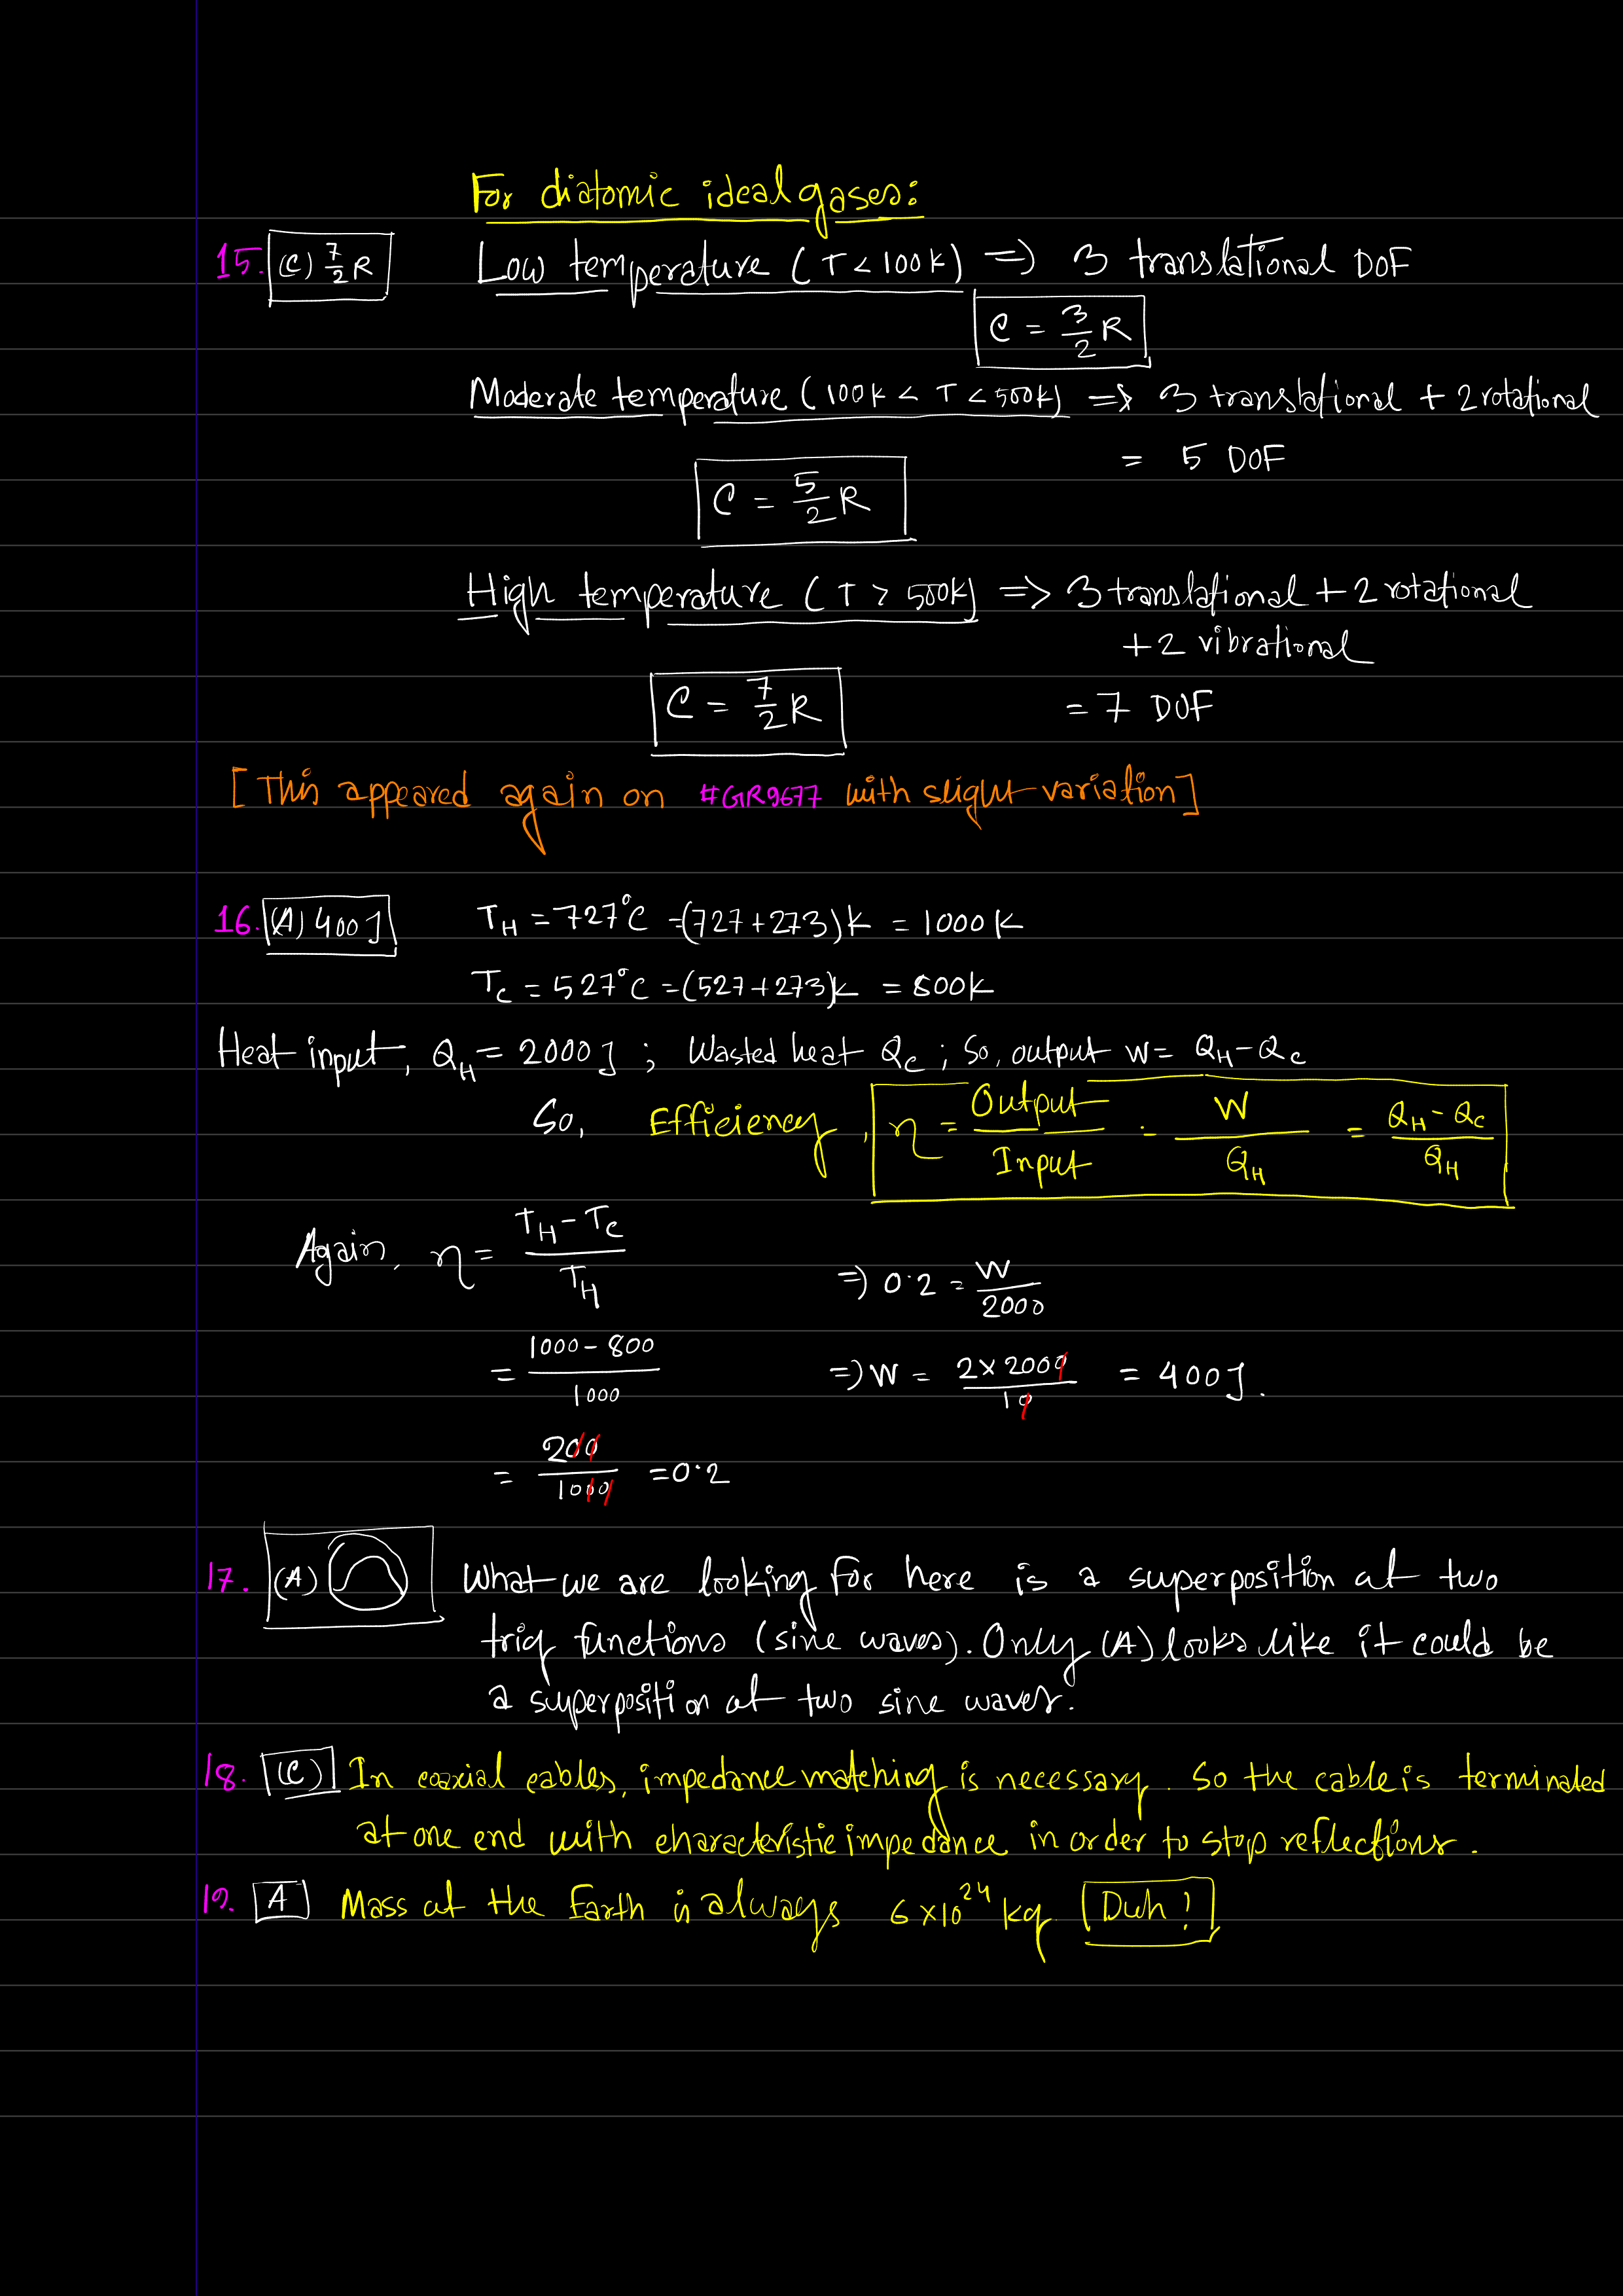 For diatomic ideal gases:
15. (C) 7/2 R Low temperature (T < 100K) => 3 translational DOF
C = 3/2 R
Moderate temperature (100K < T < 500K) => 3 translational + 2 rotational
= 5 DOF
C = 5/2 R
High temperature (T > 500K) => 3 translational + 2 rotational
+ 2 vibrational
C = 7/2 R = 7 DOF
[This appeared again on #GR9677 with slight variation]
16. (A) 400 J T_H = 727°C = (727+273)K = 1000 K
T_C = 527°C = (527+273)K = 800K
Heat input, Q_H = 2000 J ; Wasted heat Q_C ; So, output W = Q_H - Q_C
So, Efficiency, η = Output/Input = W/Q_H = (Q_H - Q_C)/Q_H
Again, η = (T_H - T_C)/T_H => 0.2 = W/2000
= (1000 - 800)/1000 => W = (2 × 2000)/10 = 400 J.
= 200/1000 = 0.2
17. (A) What we are looking for here is a superposition of two
trig functions (sine waves). Only (A) looks like it could be
a superposition of two sine waves.
18. (C) In coaxial cables, impedance matching is necessary. So the cable is terminated
at one end with characteristic impedance in order to stop reflections.
19. A Mass of the Earth is always 6 × 10^24 kg. Duh!